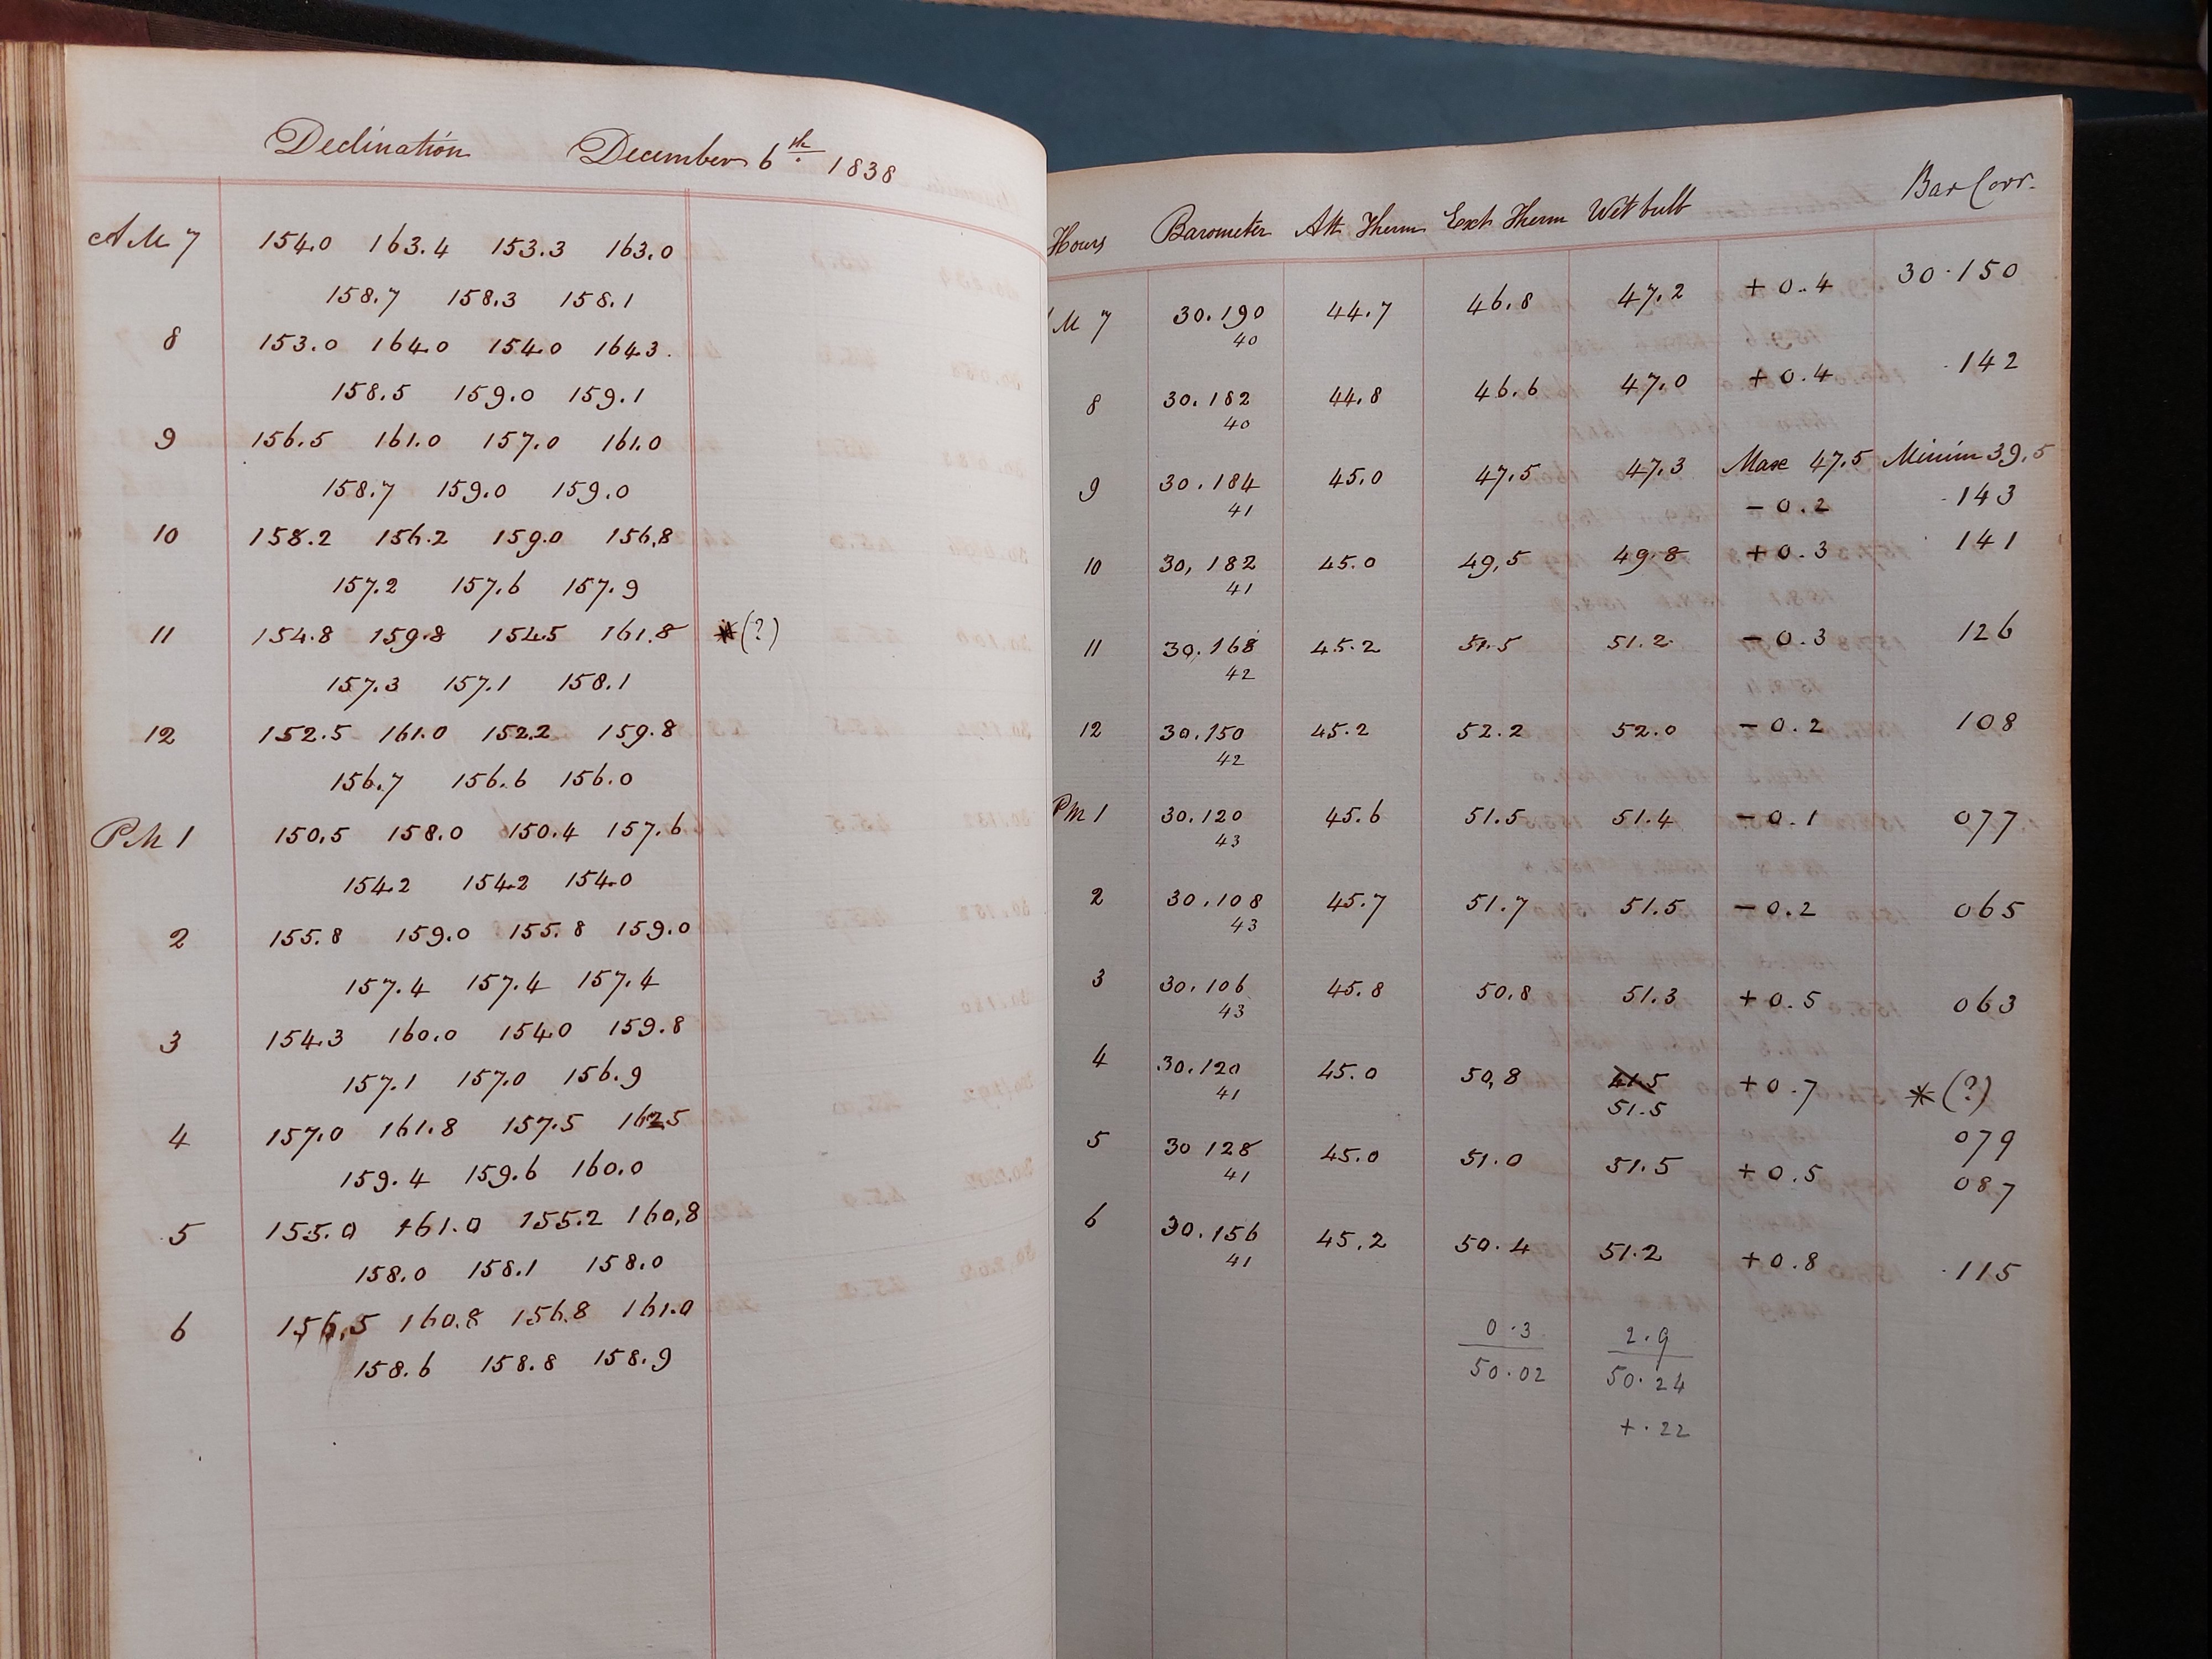 Declination December 6th 1838
AM 7 154.0 163.4 153.3 163.0
158.7 158.3 158.1
8 153.0 164.0 154.0 164.3
158.5 159.0 159.1
9 156.5 161.0 157.0 161.0
158.7 159.0 159.0
10 158.2 156.2 159.0 156.8
157.2 157.6 157.9
11 154.8 159.8 154.5 161.8 *(?)
157.3 157.1 158.1
12 152.5 161.0 152.2 159.8
156.7 156.6 156.0
PM 1 150.5 158.0 150.4 157.6
154.2 154.2 154.0
2 155.8 159.0 155.8 159.0
157.4 157.4 157.4
3 154.3 160.0 154.0 159.8
157.1 157.0 156.9
4 157.0 161.8 157.5 162.5
159.4 159.6 160.0
5 155.0 161.0 155.2 160.8
158.0 158.1 158.0
6 156.5 160.8 156.8 161.0
158.6 158.8 158.9
Hours Barometer Att Therm Ext Therm Wet bulb Bar Corr.
M 7 30.190 44.7 46.8 47.2 + 0.4 30.150
40
8 30.182 44.8 46.6 47.0 + 0.4 .142
40
Max 47.5 Minim 39.5
9 30.184 45.0 47.5 47.3 - 0.2 .143
41
10 30,182 45.0 49,5 49.8 + 0.3 141
41
11 30.168 45.2 51.5 51.2 - 0.3 126
42
12 30.150 45.2 52.2 52.0 - 0.2 108
42
PM 1 30.120 45.6 51.5 51.4 - 0.1 077
43
2 30.108 45.7 51.7 51.5 - 0.2 065
43
3 30.106 45.8 50.8 51.3 + 0.5 063
43
4 30.120 45.0 50,8 41.5 + 0.7 *(?)
41 51.5 079
5 30 128 45.0 51.0 51.5 + 0.5 087
41
6 30.156 45.2 50.4 51.2 + 0.8 .115
41
0.3 2.9
50.02 50.24
+.22